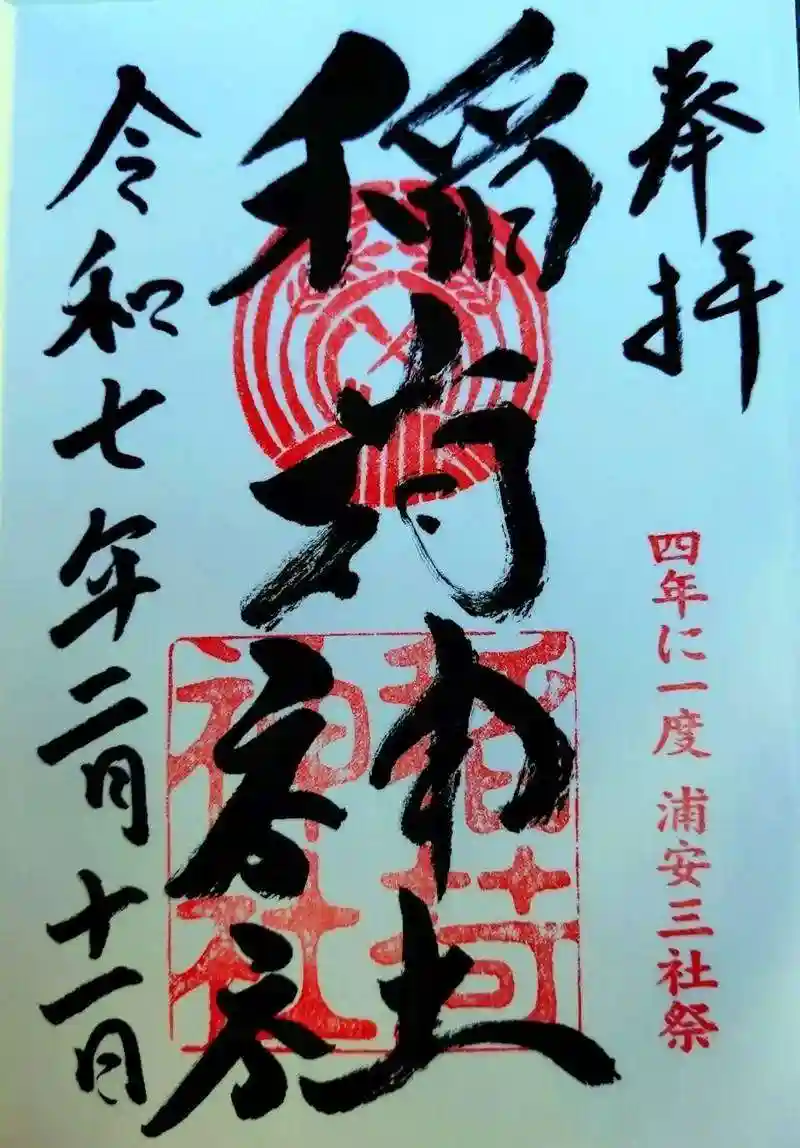 奉拝
四年に一度 浦安三社祭
稲荷神社
稲荷神社
令和七年二月十一日